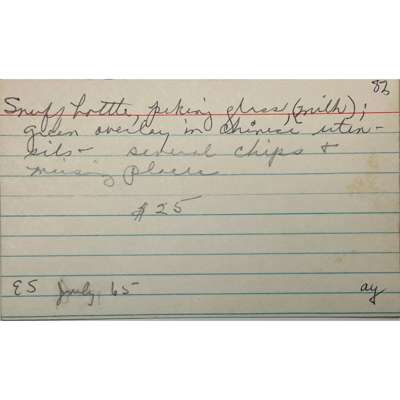 82
Snuff bottle, peking glass, (milk);
green overlay in chinese uten-
sils - several chips &
missing places
$25
ES July, 65 ay